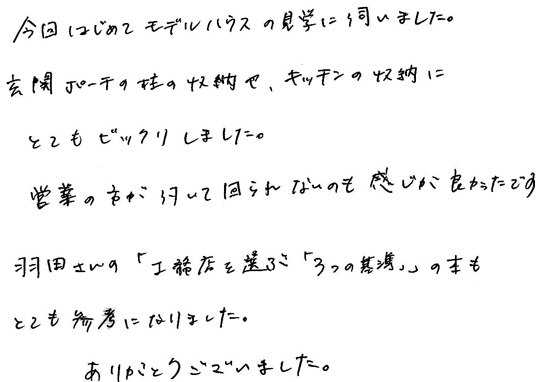 今回はじめて モデルハウス の見学に伺いました。
玄関ポーチの柱の収納や、キッチンの収納に
とても ビックリ しました。
営業の方が付いて回られないのも感じが良かったです
羽田さんの「工務店を選ぶ「3つの基準」」の本も
とても参考になりました。
ありがとうございました。